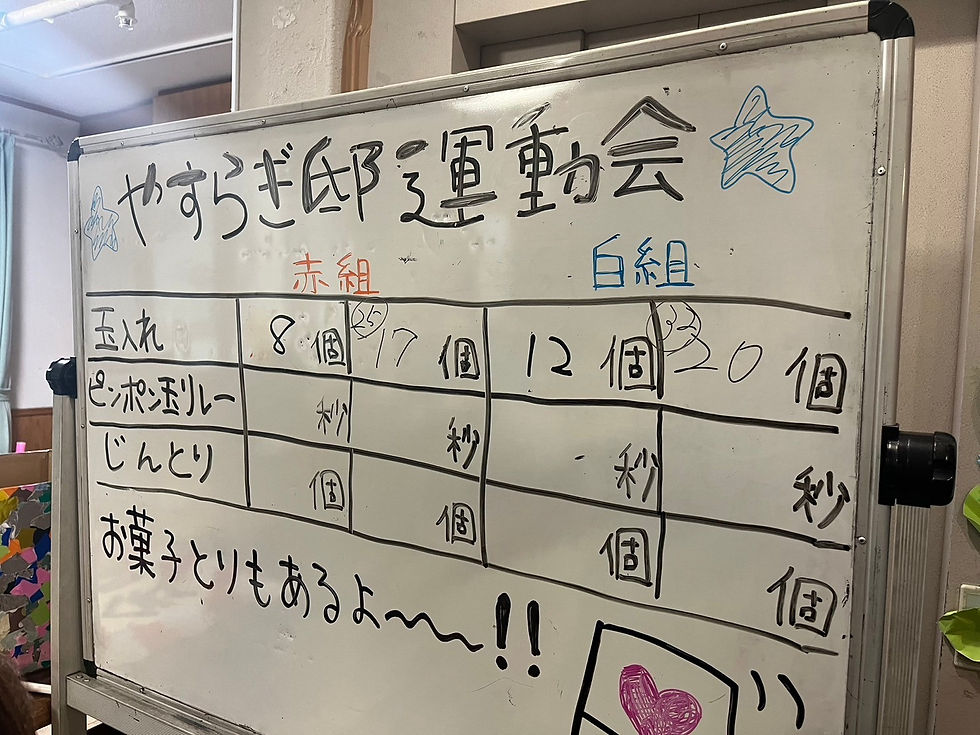 やすらぎ邸運動会
赤組 白組
玉入れ 8個 ㉕ 17個 12個 ㉜ 20個
ピンポン玉リレー 秒 秒 秒 秒
じんとり 個 個 個 個
お菓子とりもあるよ〜〜!!